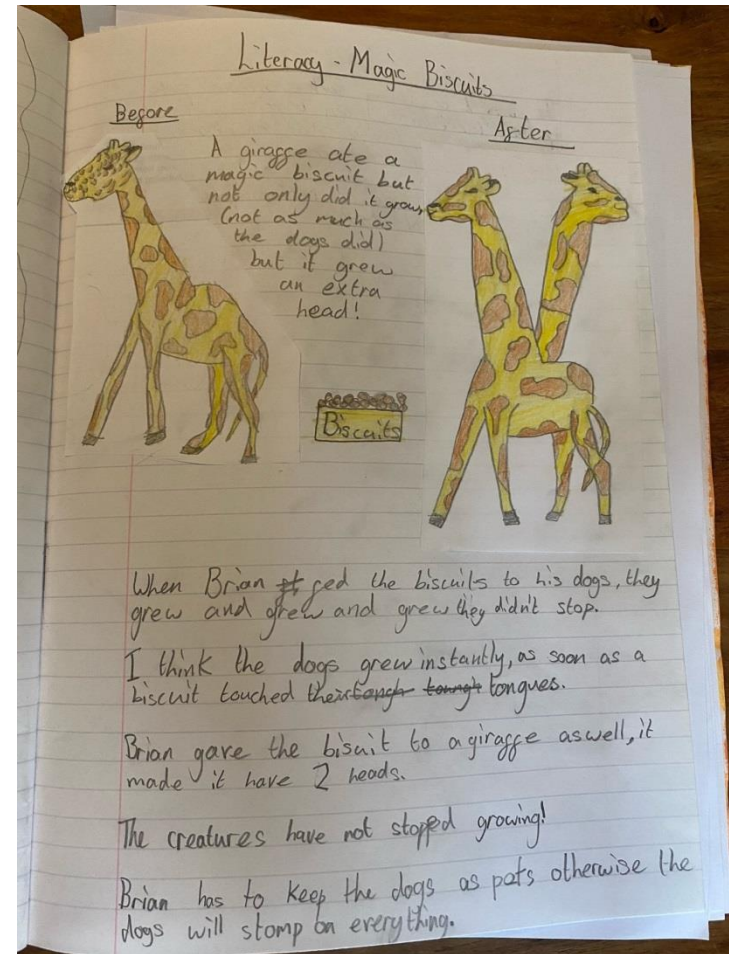 Literacy - Magic Biscuits
Before
After
A giraffe ate a
magic biscuit but
not only did it grow,
(not as much as
the dogs did)
but it grew
an extra
head!
Biscuits
When Brian fed the biscuits to his dogs, they
grew and grew and grew they didn't stop.
I think the dogs grew instantly, as soon as a
biscuit touched their tongues.
Brian gave the bisuit to a giraffe aswell, it
made it have 2 heads.
The creatures have not stopped growing!
Brian has to keep the dogs as pets otherwise the
dogs will stomp on everything.